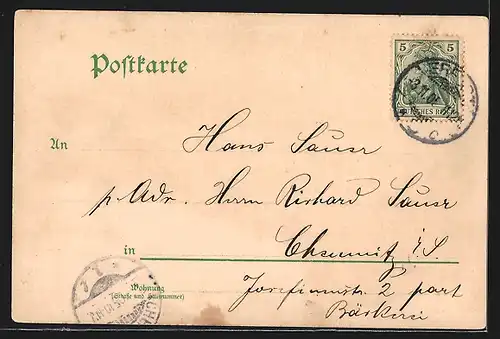 5 5
DEUTSCHES REICH
Postkarte
An Hans Sauer
p. Adr. Herrn Richard Sauer
in Chemnitz i/S.
Wohnung
(Straße und Hausnummer)
Josefinenstr. 2 part
Bäckerei